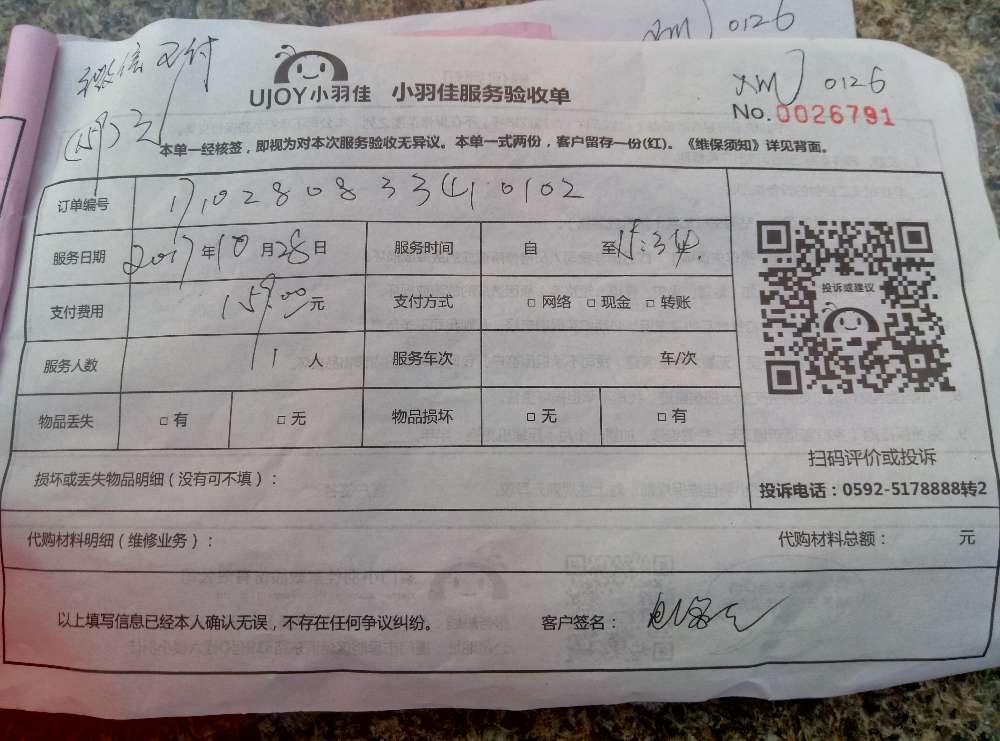 xmJ 0126
微信支付
UJOY小羽佳 小羽佳服务验收单
xmJ 0126
(159)元
No.0026791
本单一经核签，即视为对本次服务验收无异议。本单一式两份，客户留存一份(红)。《维保须知》详见背面。
订单编号 1710280833410102
服务日期 2017年10月28日 服务时间 自 至15:34
支付费用 159.00元 支付方式 □网络 □现金 □转账
投诉或建议
服务人数 1人 服务车次 车/次
物品丢失 □有 □无 物品损坏 □无 □有
扫码评价或投诉
损坏或丢失物品明细（没有可不填）：
投诉电话：0592-5178888转2
代购材料明细（维修业务）： 代购材料总额： 元
以上填写信息已经本人确认无误，不存在任何争议纠纷。 客户签名：